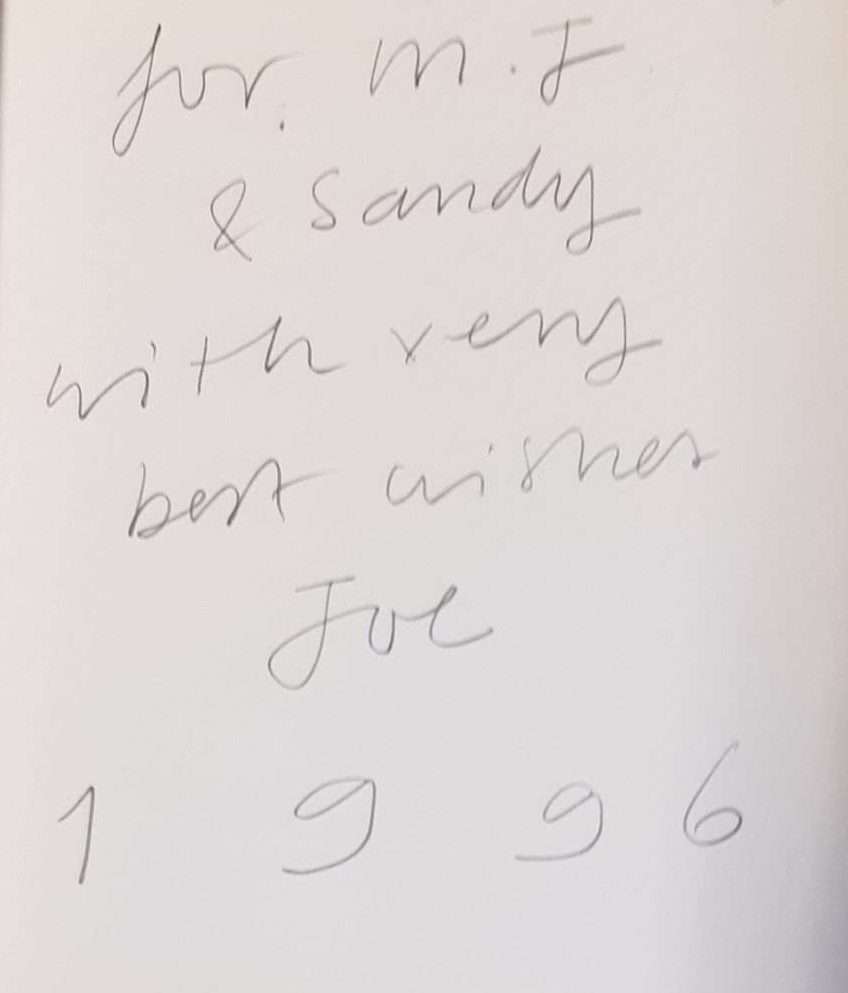 for. M. J
& Sandy
with very
best wishes
Joe
1996